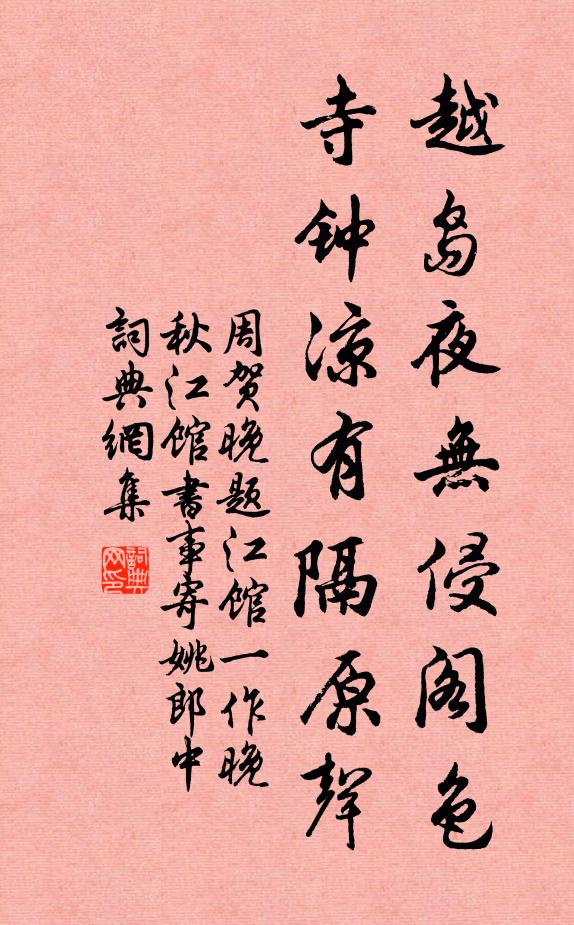 越岛夜無侵阁色
寺钟凉有隔原聲
周贺晚题江馆一作晚
秋江馆書事寄姚郎中
詞典網集
詞典网印